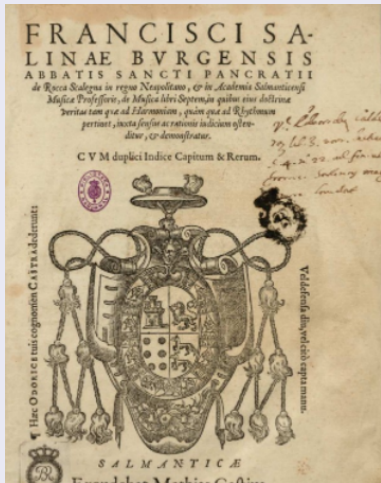 FRANCISCI SA-
LINAE BVRGENSIS
ABBATIS SANCTI PANCRATII
de Rocca Scalegna in regno Neapolitano, & in Academia Salmanticensi
Musicæ Professoris, de Musica libri Septem, in quibus eius doctrinæ
veritas tam quæ ad Harmoniam, quàm quæ ad Rhythmum
pertinet, iuxta sensus ac rationis iudicium osten-
ditur, & demonstratur.
CVM duplici Indice Capitum & Rerum.
¶ Hæc ODORICE tuis cognomen CASTRA dederunt:
Vel defensa diu, vel citò capta manu.
SALMANTICÆ
Excudebat Mathias Gastius.